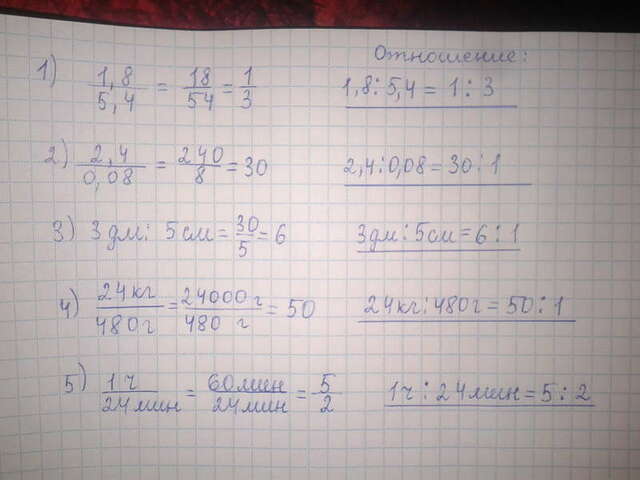 Отношение:
1) 1,8/5,4 = 18/54 = 1/3 1,8 : 5,4 = 1 : 3
2) 2,4/0,08 = 240/8 = 30 2,4 : 0,08 = 30 : 1
3) 3 дм : 5 см = 30/5 = 6 3 дм : 5 см = 6 : 1
4) 24 кг/480 г = 24000 г/480 г = 50 24 кг : 480 г = 50 : 1
5) 1 ч/24 мин = 60 мин/24 мин = 5/2 1 ч : 24 мин = 5 : 2